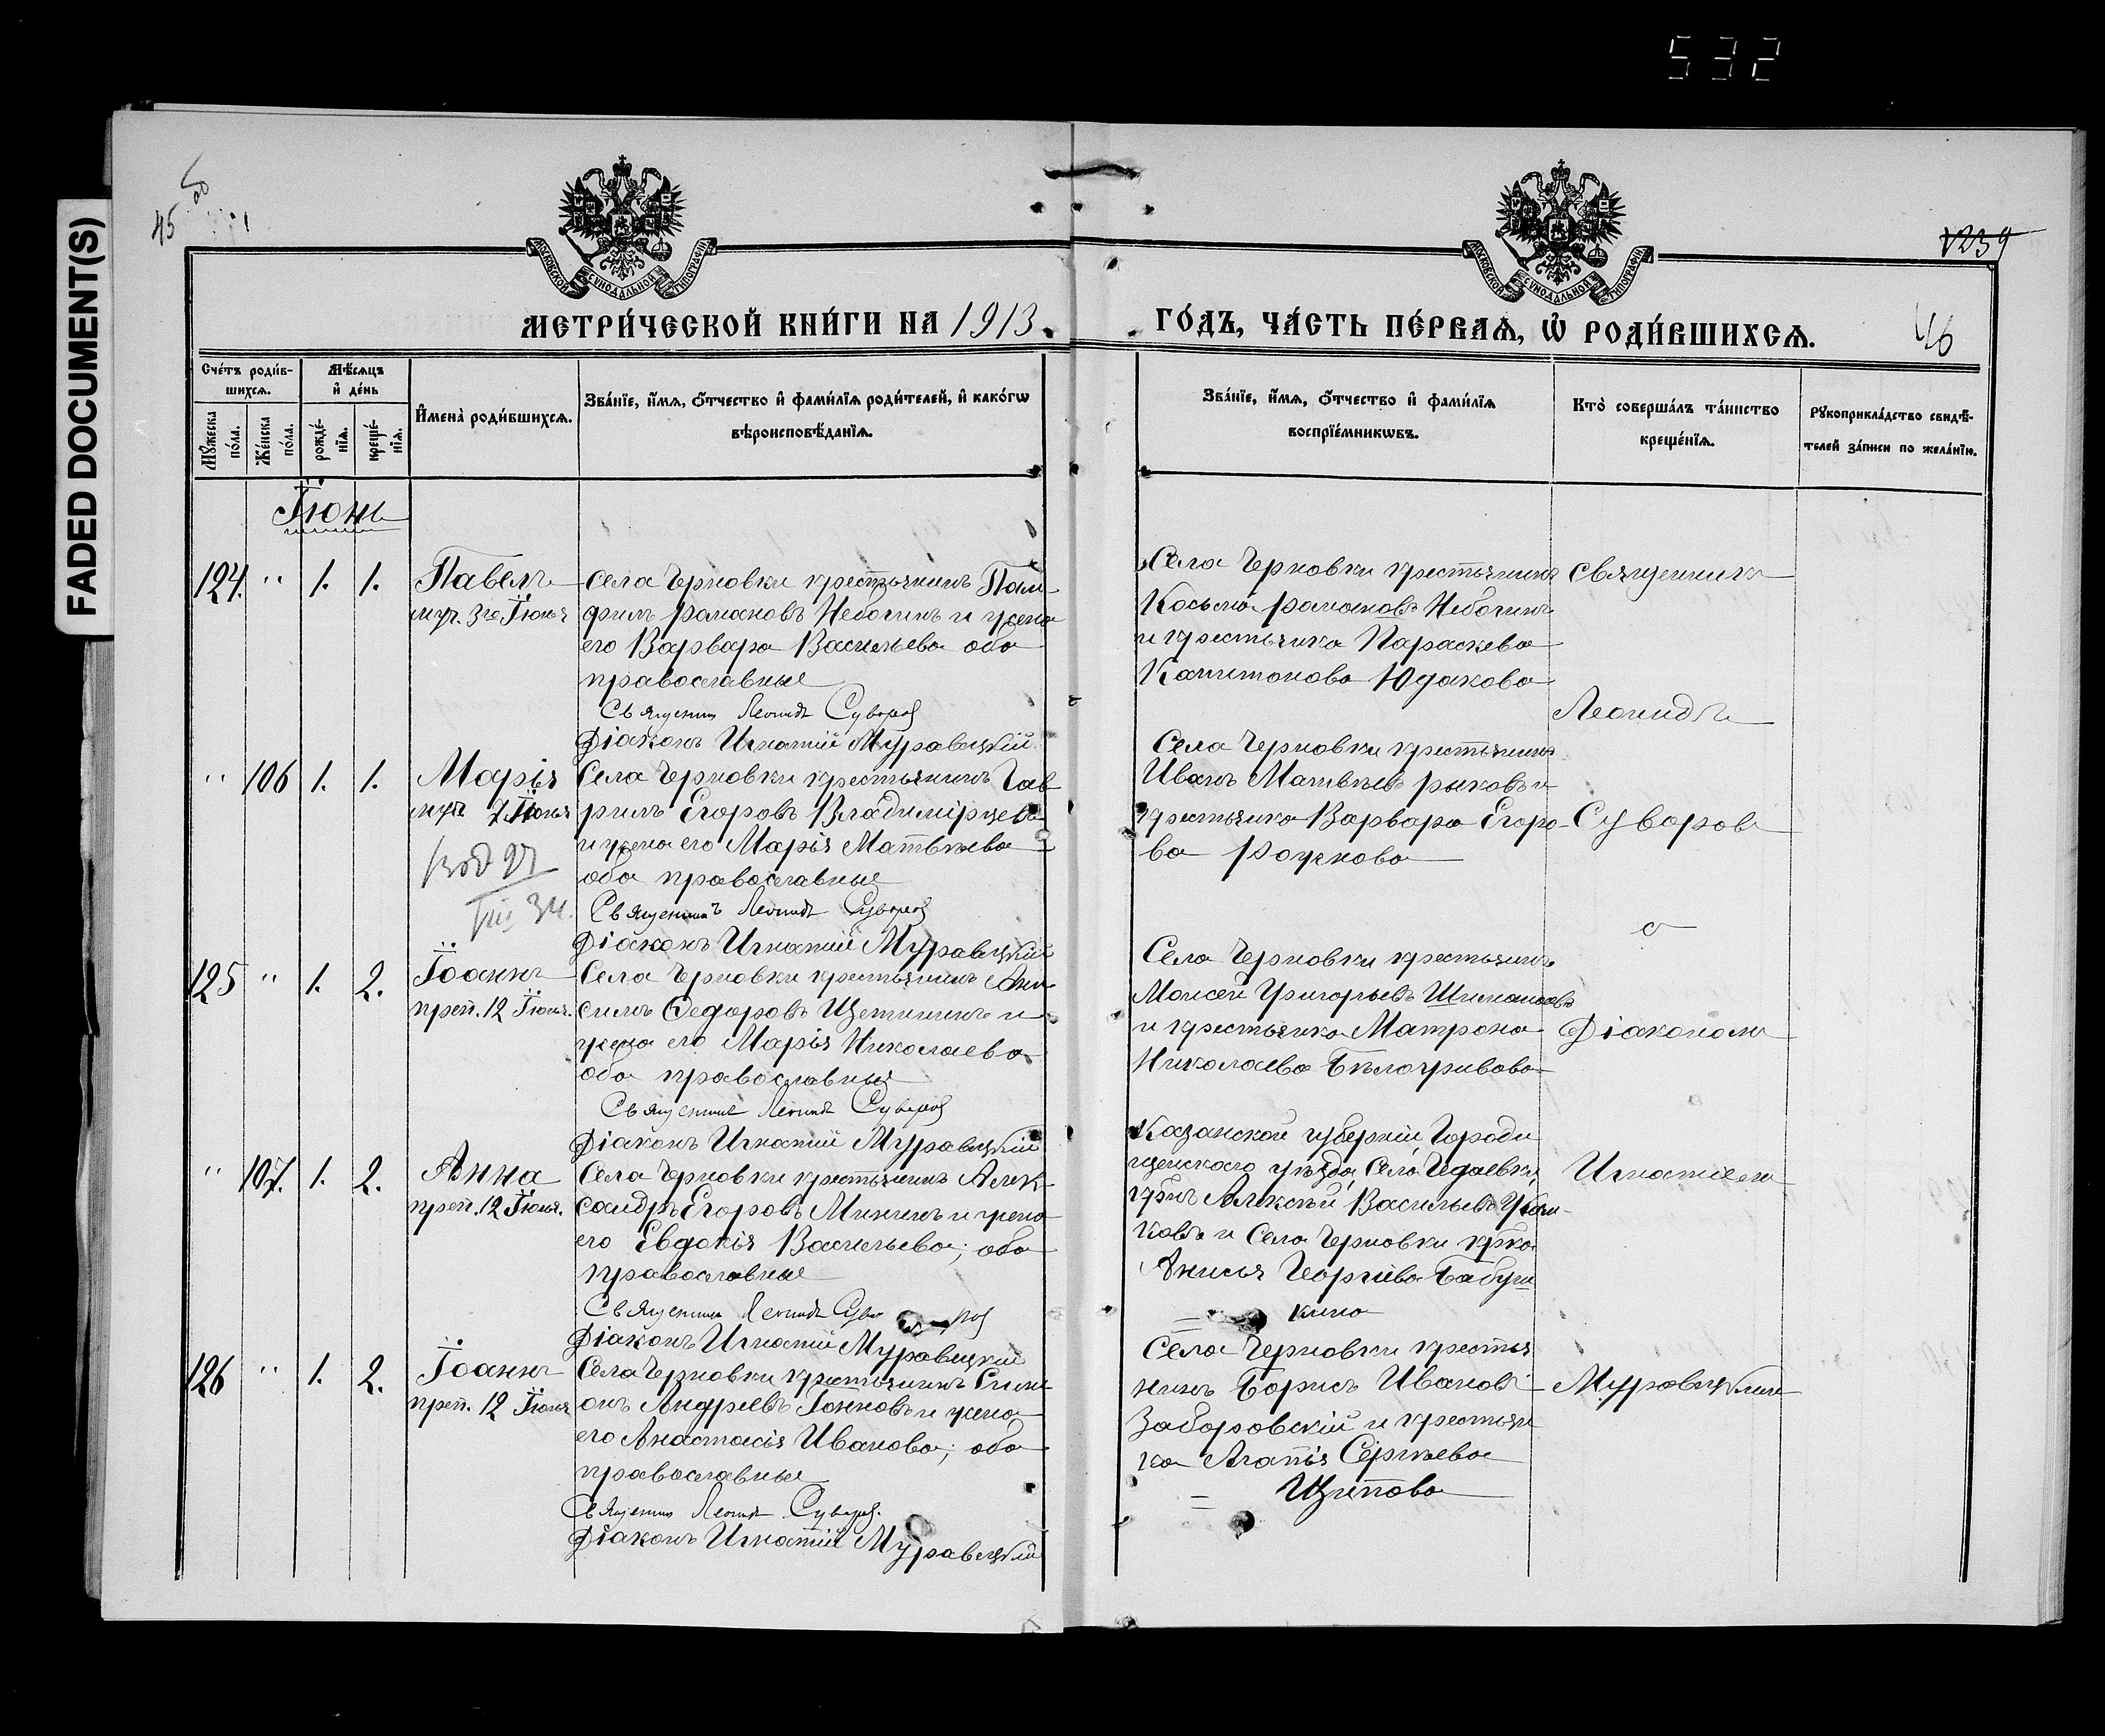 532
FADED DOCUMENT(S)
45
1239
46
МОСКОВСКОЙ СѴНОДАЛЬНОЙ ТИПОГРАФІИ
МОСКОВСКОЙ СѴНОДАЛЬНОЙ ТИПОГРАФІИ
МЕТРИ́ЧЕСКОЙ КНИ́ГИ НА 1913
ГО́ДЪ, ЧА́СТЬ ПЕ́РВАѦ, Ѿ РОДИ́ВШИХСѦ.
Сче́тъ роди́в-
шихсѧ.
Мꙋ́жеска по́ла.
Же́нска по́ла.
Мѣ́сѧцъ
и҆ де́нь
рожде́-нїѧ.
креще́-нїѧ.
И҆мена̀ роди́вшихсѧ.
Зва́нїе, и҆́мѧ, ѻ҆́тчество и҆ фами́лїѧ роди́телей, и҆ како́гѡ
вѣроисповѣ́данїѧ.
Зва́нїе, и҆́мѧ, ѻ҆́тчество и҆ фами́лїѧ
воспрїе́мникѡвъ.
Кто̀ соверша́лъ та́инство
креще́нїѧ.
Рꙋкоприкла́дство свидѣ́-
телей за́писи по жела́нїю.
Іюнь
124. " 1. 1.
Павелъ
муч. 3го Іюня
Села Черновки крестьянинъ Пам-
филъ Романовъ Неботинъ и жена
его Варвара Васильева оба
православные
Священникъ Леонидъ Суворовъ
Діаконъ Игнатій Муравицкій
Села Черновки крестьянинъ
Косьма Романовъ Неботинъ
и крестьянка Параскева
Капитонова Юдакова
" 106 1. 1.
Марія
муч 7 Іюня
Села Черновки крестьянинъ Гав-
риилъ Егоровъ Владимірцевъ
и жена его Марія Матвѣева
оба православные
Священникъ Леонидъ Суворовъ
Діаконъ Игнатій Муравицкій
Села Черновки крестьянинъ
Иванъ Матвѣевъ Рыковъ и
крестьянка Варвара Егоро-
ва Рожкова
125 " 1. 2.
Іоаннъ
преп. 12 Іюня.
Села Черновки крестьянинъ Ани-
симъ Ѳедоровъ Щетининъ и
жена его Марія Николаева
оба православные
Священникъ Леонидъ Суворовъ
Діаконъ Игнатій Муравицкій
Села Черновки крестьянинъ
Моисей Григорьевъ
и крестьянка Матрона
Николаева Бѣлогривова
" 107. 1. 2.
Анна
преп. 12 Іюня.
Села Черновки крестьянинъ Алек-
сандръ Егоровъ Мининъ и жена
его Евдокія Васильева; оба
православные
Священникъ Леонидъ Суворовъ
Діаконъ Игнатій Муравицкій
Казанской губерніи, Городи
щенскаго уѣзда, Села
крнъ Алексѣй Васильевъ
ковъ и Села Черновки крка
Анисья Георгіева Бабуш
= кина
126 " 1. 2.
Іоаннъ
преп. 12 Іюня
Села Черновки крестьянинъ Сими-
онъ Андреевъ и жена
его Анастасія Иванова; оба
православные
Священникъ Леонидъ Суворовъ.
Діаконъ Игнатій Муравицкій
Села Черновки крестья
нинъ Борисъ Ивановъ
Заборовскій и крестьян
ка Агапія Сергѣева
= Щипова
священникъ
Леонидъ
Суворовъ
с
Діакономъ
Игнатіемъ
Муравицкимъ